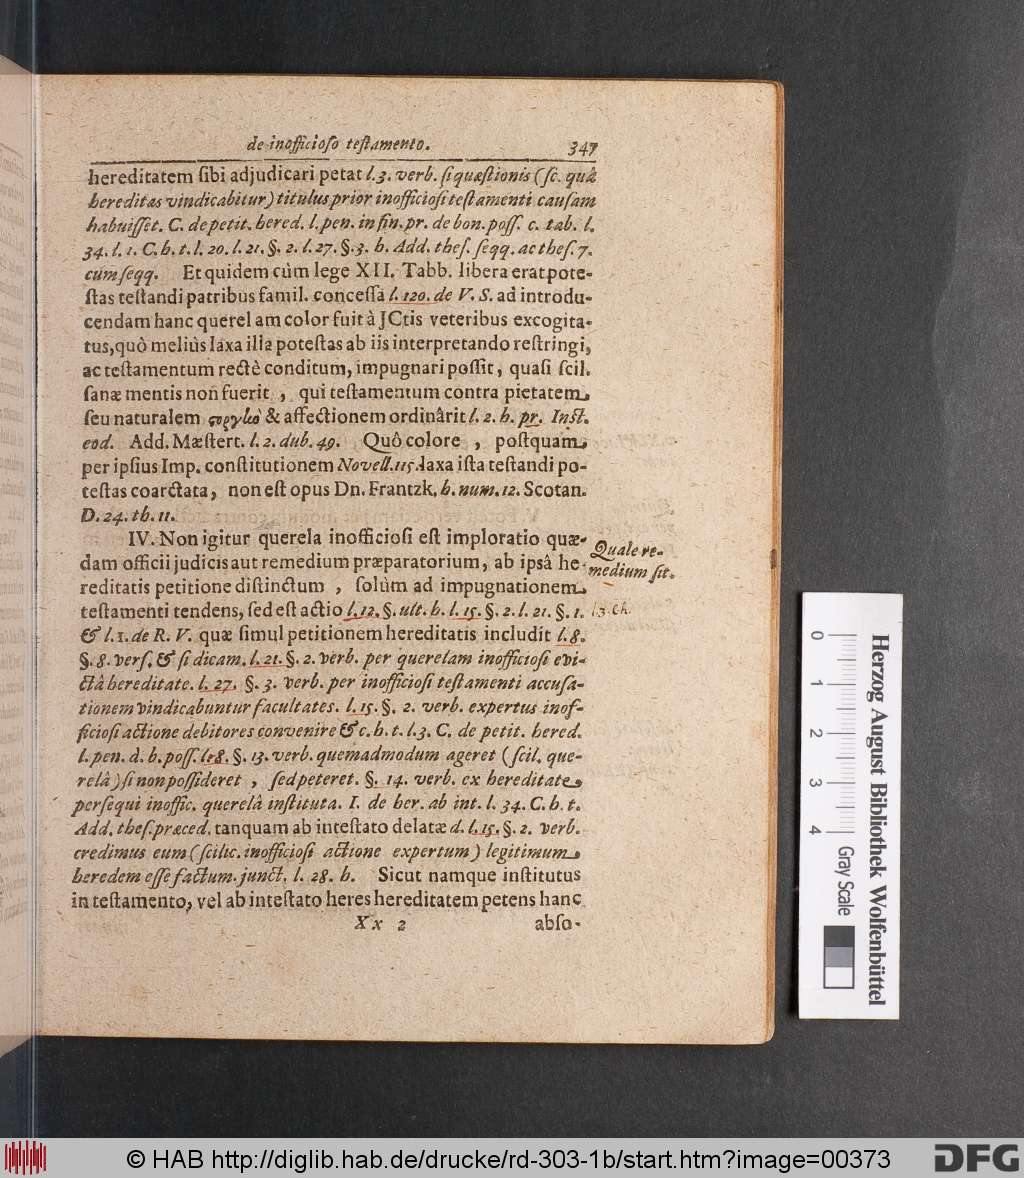 de inofficioſo teſtamento. 347
hereditatem ſibi adjudicari petat l. 3. verb. ſi quæſtionis (ſc. quâ
hereditas vindicabitur) titulus prior inofficioſi teſtamenti cauſam
habuiſſet. C. de petit. hered. l. pen. in fin. pr. de bon. poſſ. c. tab. l.
34. l. 1. C. h. t. l. 20. l. 21. §. 2. l. 27. §. 3. h. Add. theſ. ſeqq. ac theſ. 7.
cum ſeqq. Et quidem cùm lege XII. Tabb. libera erat pote-
ſtas teſtandi patribus famil. conceſſa l. 120. de V. S. ad introdu-
cendam hanc querelam color fuit à JCtis veteribus excogita-
tus, quò meliùs laxa illa poteſtas ab iis interpretando reſtringi,
ac teſtamentum rectè conditum, impugnari poſſit, quaſi ſcil.
ſanæ mentis non fuerit, qui teſtamentum contra pietatem
ſeu naturalem & affectionem ordinârit l. 2. h. pr. Inſt.
eod. Add. Mæſtert. l. 2. dub. 49. Quô colore, poſtquam
per ipſius Imp. conſtitutionem Novell. 115. laxa iſta teſtandi po-
teſtas coarctata, non eſt opus Dn. Frantzk. h. num. 12. Scotan.
D. 24. th. 11.
IV. Non igitur querela inofficioſi eſt imploratio quæ-
dam officii judicis aut remedium præparatorium, ab ipsâ he-
reditatis petitione diſtinctum, ſolùm ad impugnationem
teſtamenti tendens, ſed eſt actio l. 12. §. ult. h. l. 15. §. 2. l. 21. §. 1.
& l. 1. de R. V. quæ ſimul petitionem hereditatis includit l. 8.
§. 8. verſ. & ſi dicam. l. 21. §. 2. verb. per querelam inofficioſi evi-
ctâ hereditate. l. 27. §. 3. verb. per inofficioſi teſtamenti accuſa-
tionem vindicabuntur facultates. l. 15. §. 2. verb. expertus inof-
ficioſi actione debitores convenire & c. h. t. l. 3. C. de petit. hered.
l. pen. d. b. poſſ. l. 8. §. 13. verb. quemadmodum ageret (ſcil. que-
relâ) ſi non poſſideret, ſed peteret. §. 14. verb. ex hereditate
perſequi inoffic. querelâ inſtituta. I. de her. ab int. l. 34. C. h. t.
Add. theſ. præced. tanquam ab inteſtato delatæ d. l. 15. §. 2. verb.
credimus eum (ſcilic. inofficioſi actione expertum) legitimum
heredem eſſe factum. junct. l. 28. h. Sicut namque inſtitutus
in teſtamento, vel ab inteſtato heres hereditatem petens hanc
Xx 2 abſo-
Quale re-
medium ſit.
Herzog August Bibliothek Wolfenbüttel
0 1 2 3 4 Gray Scale
© HAB http://diglib.hab.de/drucke/rd-303-1b/start.htm?image=00373
DFG